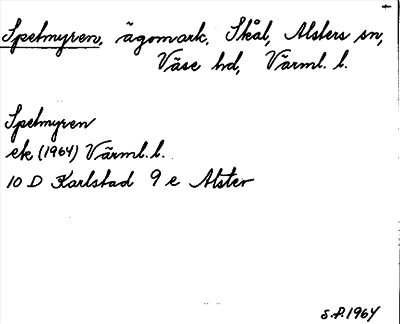 +
Spelmyren, ägomark, Skål, Alsters sn,
Väse hd, Värml. l.
Spelmyren
ek (1964) Värml. l.
10 D Karlstad 9 e Alster
S.P. 1964